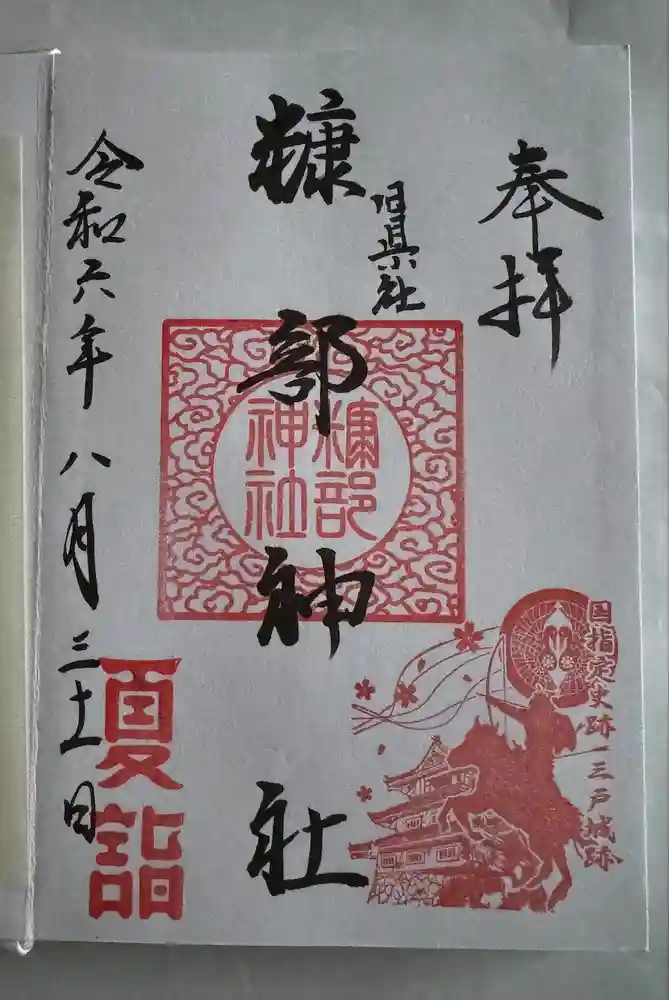 奉拝
旧県社
糠部神社
糠部
神社
国指定史跡 三戸城跡
令和六年八月三十一日
夏詣